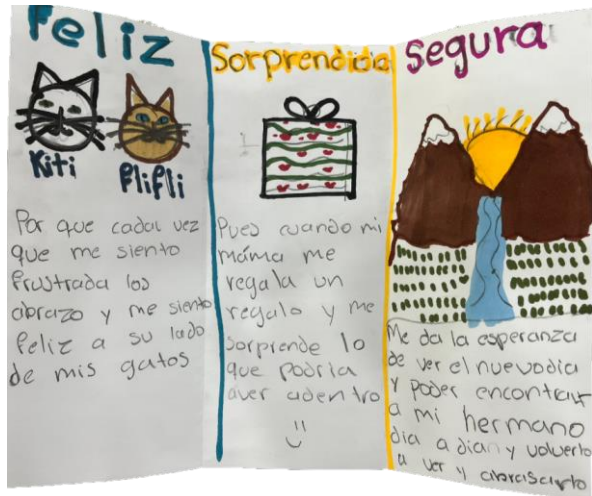 Feliz
Kiti
flifli
Por que cada vez
que me siento
frustrada los
abrazo y me siento
feliz a su lado
de mis gatos
Sorprendida
Pues cuando mi
máma me
regala un
regalo y me
sorprende lo
que podria
aver adentro
Segura
Me da la esperanza
de ver el nuevo dia
y poder encontrar
a mi hermano
dia a dia n y volverlo
a ver y abrasarlo